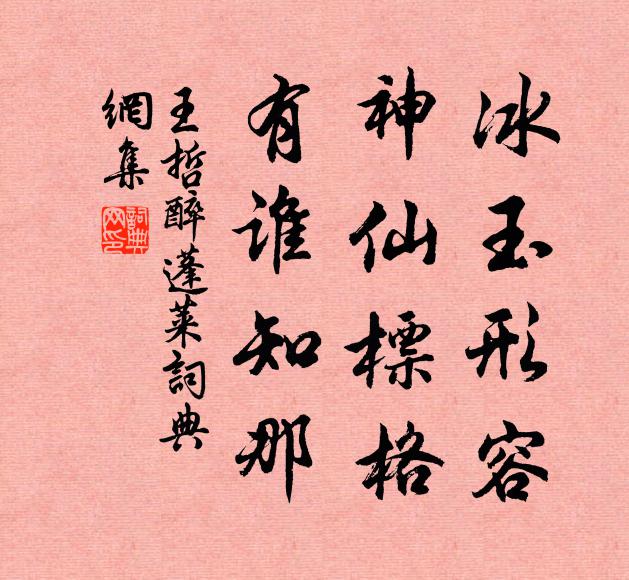 冰玉形容
神仙標格
有誰知那
王哲醉蓬萊詞典
網集
詞典網印